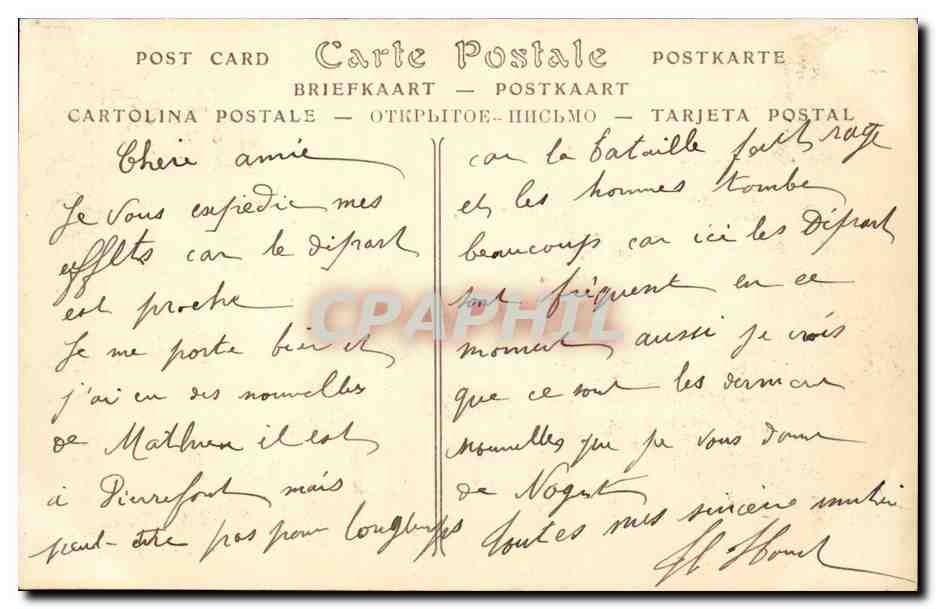 POST CARD Carte Postale POSTKARTE
BRIEFKAART — POSTKAART
CARTOLINA POSTALE — ОТКРЫТОЕ-ПИСЬМО — TARJETA POSTAL
Chere amie
Je vous expédie mes
effets car le départ
est proche
Je me porte bien et
j'ai eu des nouvelles
de Mathieu il est
à Pierrefont mais
peut-etre pas pour longtemps
car la bataille fait rage
et les hommes tombe
beaucoup car ici les Départ
sont fréquent en ce
moment aussi je crois
que ce sont les derniere
nouvelles que je vous donne
de Nogent
toutes mes sincère
CPAPHIL